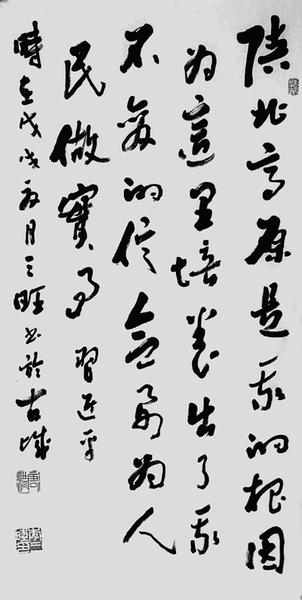 陕北高原是我的根因
为這里培养出了我
不变的信念要为人
民做實事 習近平
時在戊戌 月三旺书於古城